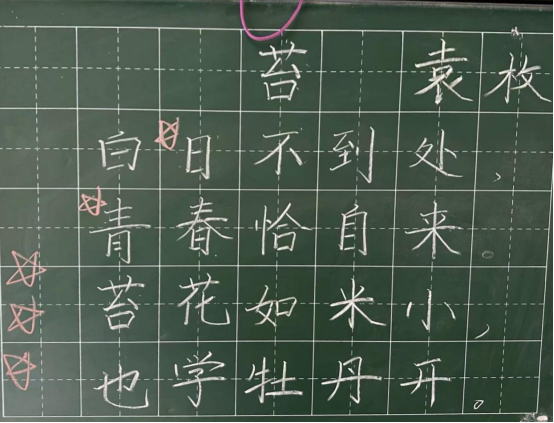 苔 袁枚
白日不到处，
青春恰自来。
苔花如米小，
也学牡丹开。